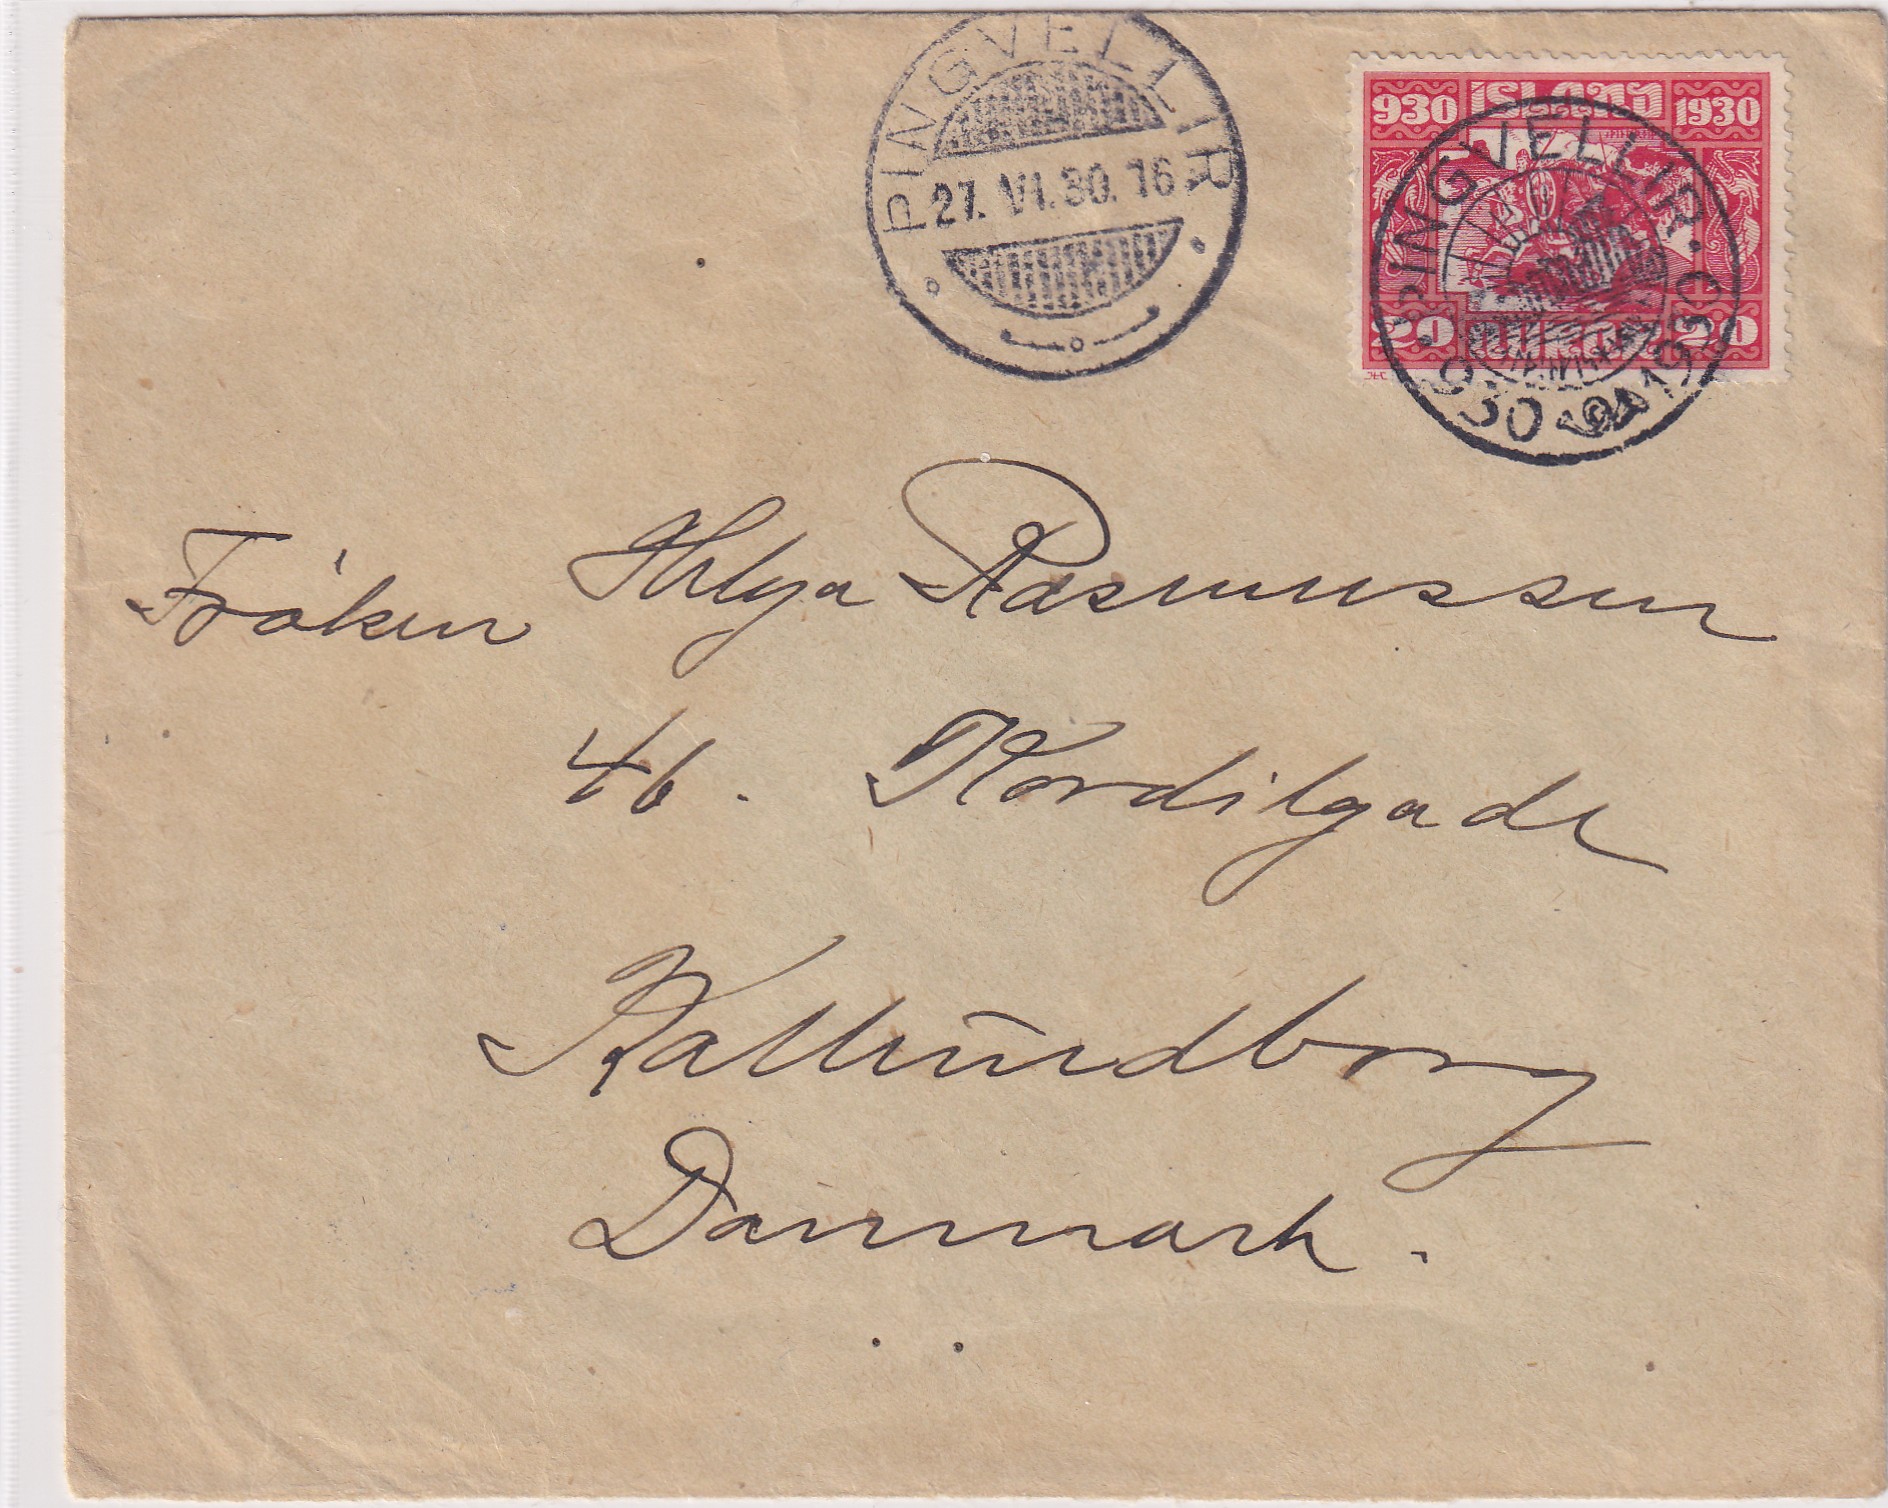 ÞINGVELLIR
27. VI. 30. 16
930 ÍSLAND 1930
20 AURAR 20
ÞINGVELLIR · 930 1930
Fröken Helga Rasmussen
46. Nordilgade
Kallundborg
Danmark.